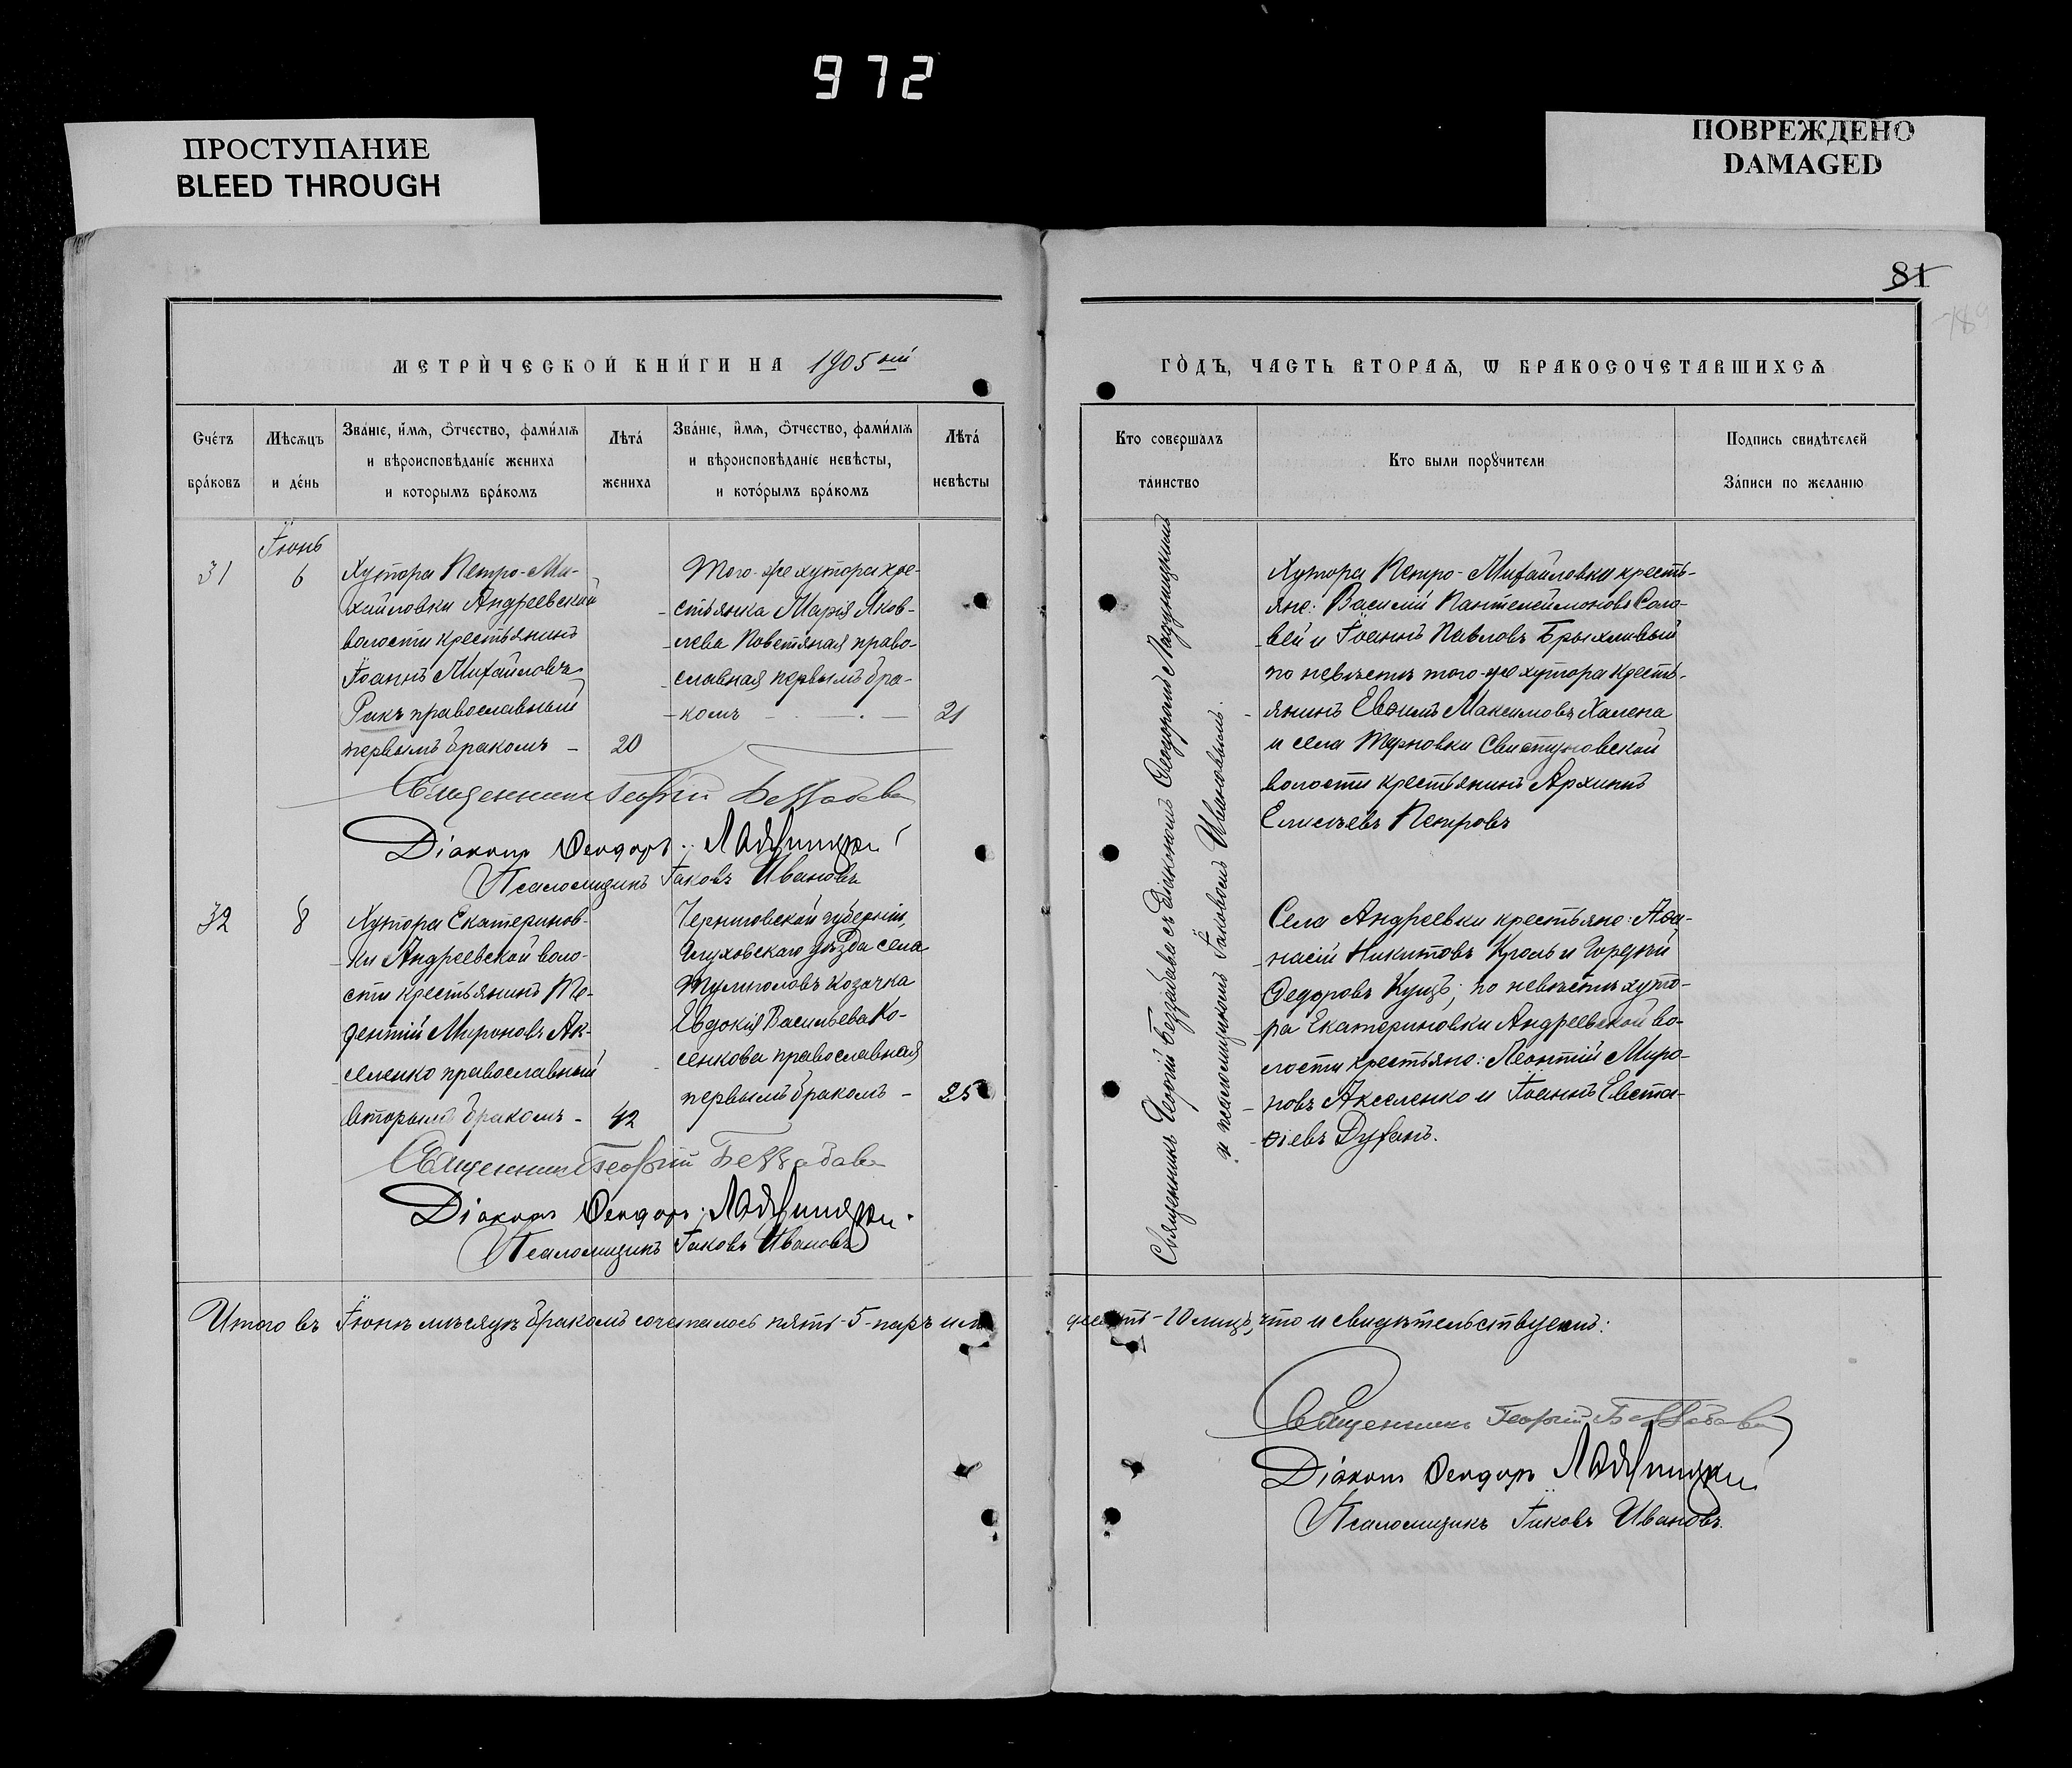 972
ПРОСТУПАНИЕ
BLEED THROUGH
ПОВРЕЖДЕНО
DAMAGED
81
МЕТРИ́ЧЕСКОЙ КНИ́ГИ НА 1905 ый
ГО́ДЪ, ЧАСТЬ ВТОРАѦ, Ѡ БРАКОСОЧЕТАВШИХСѦ
Сче́тъ
бра́ковъ
Мѣсѧцъ
и де́нь
Зва́нїе, и҆́мѧ, ѻ҆́тчество, фами́лїѧ
и вѣроисповѣданїе жениха
и которымъ бра́комъ
Лѣта́
жениха
Зва́нїе, и҆́мѧ, ѻ҆́тчество, фами́лїѧ
и вѣроисповѣданїе невѣсты,
и кото́рымъ бра́комъ
Лѣта́
невѣсты
Кто совершалъ
та́инство
Кто были порꙋчители
Подпись свидѣтелей
За́писи по желанїю
31
Іюнь
6
Хутора Петро-Ми-
хайловки Андреевской
волости крестьянинъ
Іоаннъ Михайловъ
Ракъ православный
первымъ бракомъ - 20
Того-же хутора кре-
стьянка Марія Яков-
лева Поветяная право-
славная первымъ бра-
комъ 21
Священникъ Георгій Беззабава
Діаконъ Ѳеодоръ
Псаломщикъ Іаковъ Ивановъ
Хутора Петро-Михайловки кресть-
яне: Василій Пантелеймоновъ Соло-
вей и Іоаннъ Павловъ Брыхливый
по невѣстѣ того-же хутора кресть-
янинъ Евѳимъ Максимовъ Халена
и села Терновки Свистуновской
волости крестьянинъ Архипъ
Елисѣевъ Петровъ
32
8
Хутора Екатеринов-
ки Андреевской воло-
сти крестьянинъ Те-
рентій Мироновъ Ак-
селенко православный
вторымъ бракомъ - 42
Черниговской губерніи,
Глуховскаго уѣзда села
Тулиголовъ козачка
Евдокія Васильева Ко-
сенкова православная
первымъ бракомъ - 25
Священникъ Георгій Беззабава
Діаконъ Ѳеодоръ
Псаломщикъ Іаковъ Ивановъ
Села Андреевки крестьяне: Аѳа-
насій Никитовъ Кроль и Гордѣй
Ѳедоровъ Куцъ; по невѣстѣ хуто-
ра Екатериновки Андреевской во-
лости крестьяне: Леонтій Миро-
новъ Акселенко и Іоаннъ Евста-
ѳіевъ Духанъ.
Священникъ Георгій Беззабава съ діакономъ Ѳеодоромъ
и псаломщикомъ Іаковомъ Ивановымъ.
Итого въ Іюнѣ мѣсяцѣ бракомъ сочеталось пять-5-паръ или десять-10 лицъ, что и свидѣтельствуемъ:
Священникъ Георгій Беззабава
Діаконъ Ѳеодоръ
Псаломщикъ Іаковъ Ивановъ.